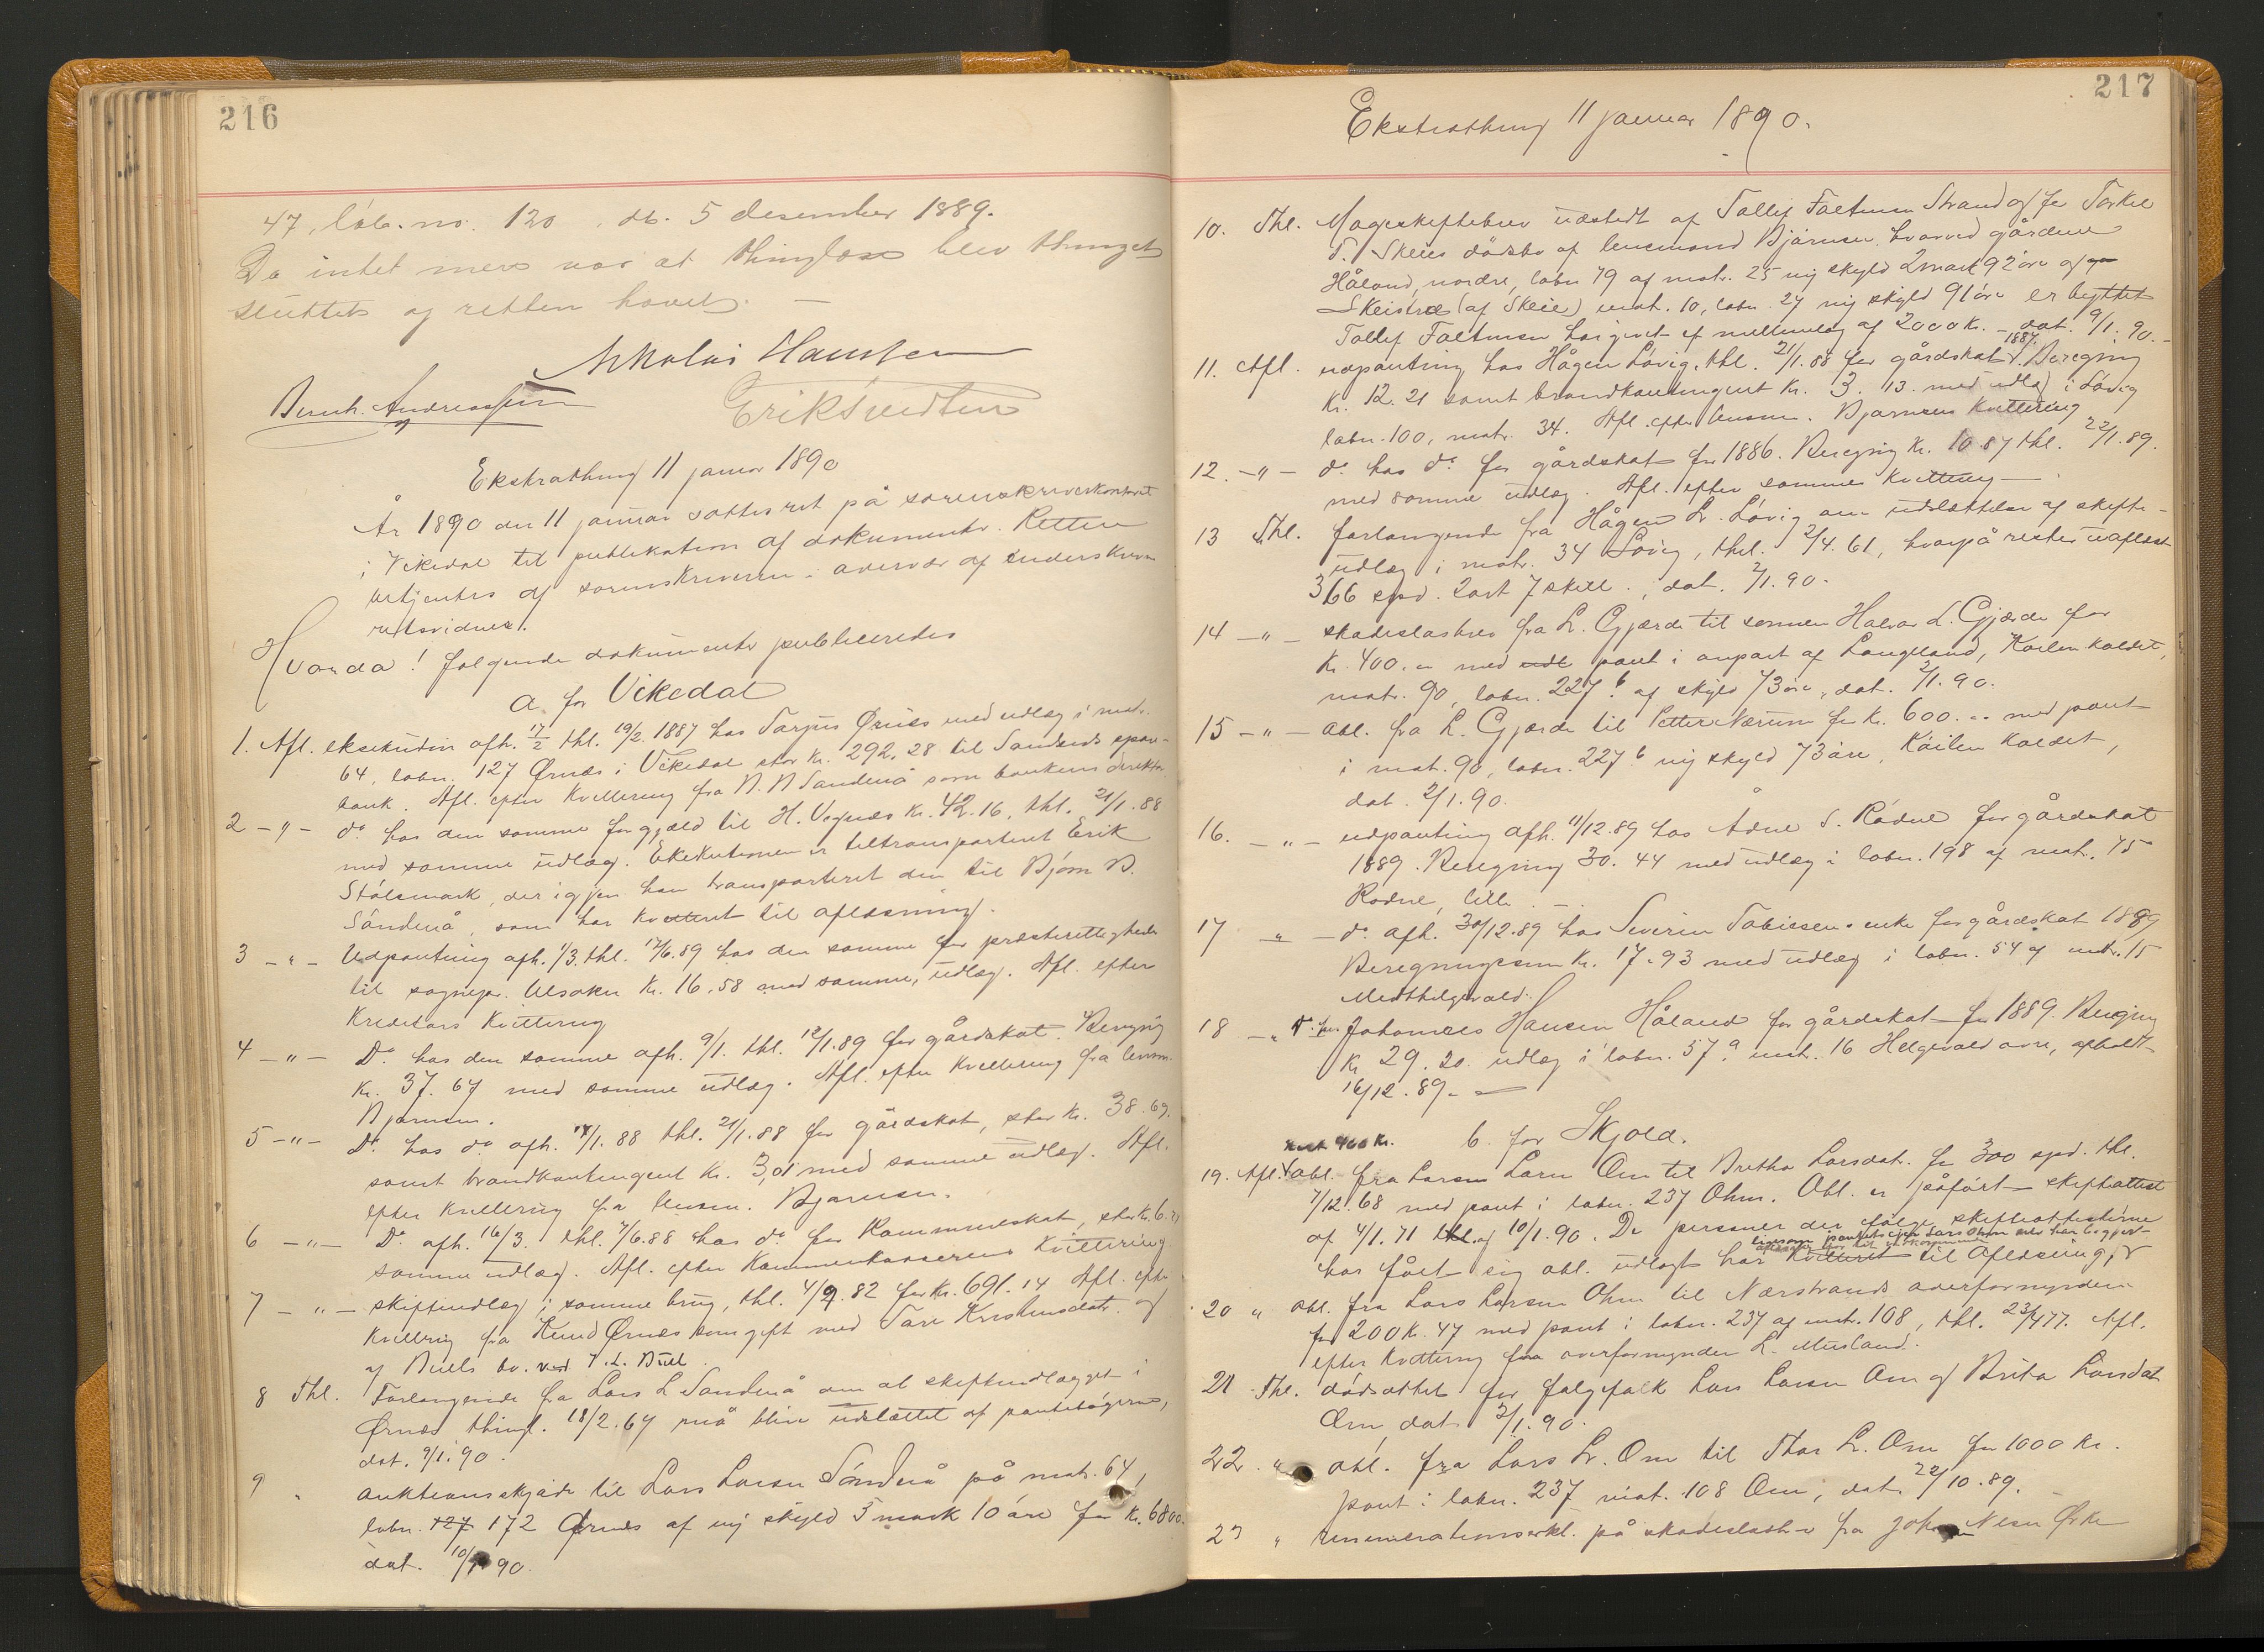 216
47, löb. no. 120, dt. 5 desember 1889.
Da intet mere var at thinglæse blev thinget
sluttet og retten hævet. —
Nikolai Hausken
Bernh. Andreassen
Erik Svedten
Ekstrathing 11 januar 1890
År 1890 den 11 januar sattes ret på sorenskriverkontoret
i Vikedal til publikation af dokumenter. Retten
betjentes af sorenskriveren i overvær af underskrevne
retsvidner.
Hvorda! følgende dokumenter publiceredes
a. for Vikedal
1. Afl. eksekution afh. 17/2 thl. 19/2 1887 hos Tarjus Ørnes med udlæg i matr.
64, løbn. 127 Ørnæs i Vikedal stor kr. 292.28 til Sandeids spare-
bank. Afl. efter kvittering fra N. N Sandenå som bankens direktør
2 - " - do hos den samme for gjæld til H. Vognæs kr. 42.16, thl. 21/1.88
med samme udlæg. Eksekutionen er tiltransporteret Erik
Stölsmark, der igjen har transporteret den til Bjørn B.
Söndenå, som har kvitteret til aflæsning.
3 - " - Udpantning afh. 1/3. thl. 17/6.89 hos den samme for præsterettigheder
til sognepr. Alsaker kr. 16.58 med samme udlæg. Afl. efter
kreditors kvittering
4 - " - Do hos den samme afh. 9/1. thl. 12/1.89 for gårdskat. Beregnig
kr. 37.67 med samme udlæg. Afl. efter kvittering fra lensm.
Bjørnsen.
5 - " - Do hos do afh. 14/1.88 thl. 21/1.88 for gårdskat, stor kr. 38.69.
samt brandkontingent kr. 3,01 med samme udlæg. Afl.
efter kvittering fra lensm. Bjørnsen.
6 - " - Do afh. 16/3. thl. 7/6.88 hos do for kommuneskat, stor kr. 6.
samme udlæg. Afl. efter kommunekasserens kvittering
7 - " - skifteudlæg i samme brug, thl. 4/9.82 for kr. 691.14 Afl. efter
kvittering fra Knud Ørnæs som gift med Tare Kristensdatr. og
af Bulls bo. ved V. L. Bull.
8 Thl. Forlangende fra Lars L Sandenå om at skifteudlægget i
Ørnæs thingl. 18/2.67 må blive udslettet af pantebøgerne,
dat. 9/1.90.
9 " auktionsskjøde til Lars Larsen Söndenå på matr. 64,
løbn. 127 172 Ørnes af ny skyld 5 mark 10 øre for kr. 6800.
dat. 10/1 90.
217
Ekstrathing 11 januar 1890.
10. Thl. Mageskiftebrev udstedt af Tollef Faltinsen Strand og for Torkel
T. Skeies dödsbo af lensmand Bjørnsen, hvorved gårdene
Håland, nordre, løbn 79 af matr. 25 ny skyld 2 mark 92 øre og
Skeistræ (af Skeie) matr. 10, løbn. 27 ny skyld 91 øre er byttet
Tollef Faltinsen har givet et mellemlag af 2000 kr. - dat. 9/1.90.-
11. Afl. udpantning hos Hågen Lövig, thl. 21/1.88 for gårdskat 1887. Beregnig
kr. 12.21 samt brandkontingent kr. 3.13 med udlæg i Lövig
løbn. 100, matr. 34. Afl. efter lensm. Bjørnsens kvittering
12. - " - do hos do for gårdskat for 1886. Beregnig kr. 10.87 thl. 22/1.89.
med samme udlæg. Afl. efter sammes kvittering —
13 Thl. forlangende fra Hågen L. Lövig om udslettelse af skifte-
udlæg i matr. 34 Lövig, thl. 2/4.61, hvorpå rester uaflæst
366 spd. 2 ort 7 skill., dat. 2/1.90.
14 - " - skadeslösbrev fra L. Gjærde til sönnen Halvor L. Gjærde for
kr. 400.- med udt pant i anpart af Langeland, Koilen kaldet,
matr. 90, løbn. 227 b af skyld 73 øre, dat. 2/1.90.
15 - " - obl. fra L. Gjærde til Petter Nærum for kr. 600.- med pant
i mat. 90, løbn. 227 b ny skyld 73 øre, Köilen kaldet,
dat. 2/1.90.
16. - " - udpantning afh. 11/12.89 hos Ådne S. Rödne for gårdskat
1889. Beregning 30.44 med udlæg i løbn. 198 af matr. 75
Rödne, lille. -
17 - " - do. afh. 30/12.89 hos Severin Tobiesens enke for gårdskat 1889
Beregningssum kr. 17.93 med udlæg i løbn. 54 af matr. 15
Medthelgevold.
18 - " do. hos Johannes Hansen Håland for gårdskat for 1889. Beregnig
kr 29.20 udlæg i løbn. 57 a matr. 16 Helgevold øvre, afholdt
16/12.89. -
b. for Skjold.
rest 400 kr.
19. Afl. obl. fra Larsen Larsn Om til Brita Larsdatr. for 300 spd. thl.
7/12.68 med pant i løbn. 237 Ohm. Obl. er påført skifteattest
af 4/1.71 thl. og 10/1.90. De personer der ifölge skifteattesterne
ligesom pantets eier Lars Ohm selv har begjært
har fået sig obl. udlagt har kvitteret til Aflæsning,
20 " obl. fra Lars Larsen Ohm til Nærstrands overformynderi
for 200 kr. 47 med pant i løbn. 237 af matr. 108, thl. 23/4 77. Afl.
efter kvittering fra overformynder L. Musland.
21 Thl. dödsattest for følgefolk Lars Larsen Om og Brita Larsdat
Om, dat 3/1.90.
22. " obl. fra Lars L. Om til Thor L. Om for 1000 kr.
pant i løbn. 237 mat. 108 Om, dat. 22/10.89.
23 " renunciationserkl. på skadeslösbrev fra Johan Nesn Ørke